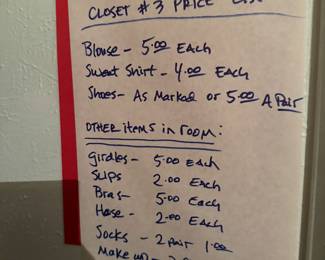 CLOSET #3 PRICE LIST
Blouse - 5.00 EACH
Sweat Shirt - 4.00 EACH
Shoes - As MARKED or 5.00 A PAIR
OTHER ITEMS IN ROOM:
Girdles - 5.00 EACH
Slips 2.00 EACH
Bras - 5.00 EACH
Hose - 2.00 EACH
Socks - 2 PAIR 1.00
MAKE UP -